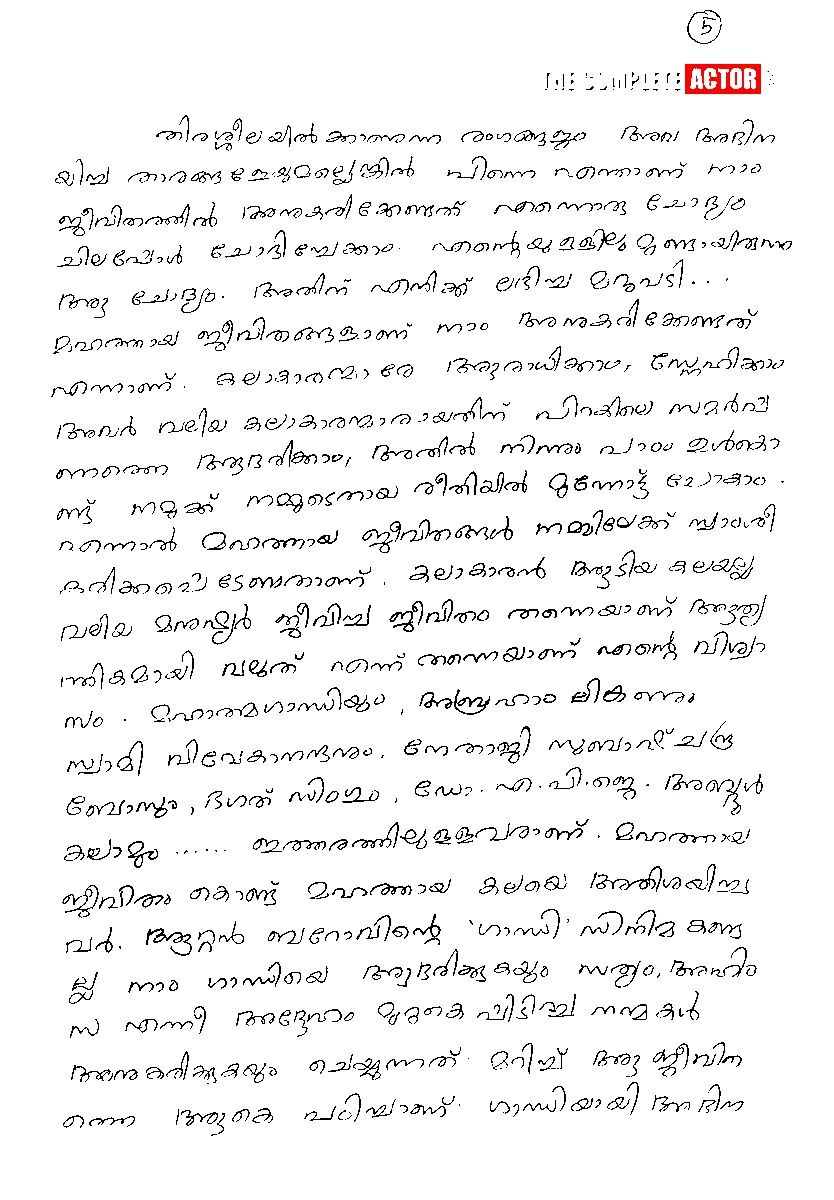 5
THE COMPLETE ACTOR
തിരശ്ശീലയിൽ കാണുന്ന രംഗങ്ങളും അവ അഭിന
യിച്ച താരങ്ങളേയുമല്ലെങ്കിൽ പിന്നെ എന്താണ് നാം
ജീവിതത്തിൽ അനുകരിക്കേണ്ടത് എന്നൊരു ചോദ്യം
ചിലപ്പോൾ ചോദിച്ചേക്കാം. എന്റെയുള്ളിലുമുണ്ടായിരുന്നു
ആ ചോദ്യം. അതിന് എനിക്ക് ലഭിച്ച മറുപടി...
മഹത്തായ ജീവിതങ്ങളാണ് നാം അനുകരിക്കേണ്ടത്
എന്നാണ്. കലാകാരന്മാരേ ആരാധിക്കാം, സ്നേഹിക്കാം
അവർ വലിയ കലാകാരന്മാരായതിന് പിറകിലെ സമർപ്പ
ണത്തെ ആദരിക്കാം, അതിൽ നിന്നും പാഠം ഉൾകൊ
ണ്ട് നമുക്ക് നമ്മുടെതായ രീതിയിൽ മുന്നോട്ട് പോകാം.
എന്നാൽ മഹത്തായ ജീവിതങ്ങൾ നമ്മിലേക്ക് സ്വാംശീ
കരിക്കപ്പെടേണ്ടതാണ്. കലാകാരൻ ആടിയ കലയല്ല
വലിയ മനുഷ്യർ ജീവിച്ച ജീവിതം തന്നെയാണ് ആത്യ
ന്തികമായി വലുത് എന്ന് തന്നെയാണ് എന്റെ വിശ്വാ
സം. മഹാത്മഗാന്ധിയും, അബ്രഹാം ലിങ്കണും
സ്വാമി വിവേകാനന്ദനും, നേതാജി സുബാഷ് ചന്ദ്ര
ബോസും, ഭഗത് സിംഗും, ഡോ. എ.പി.ജെ. അബ്ദുൾ
കലാമും ...... ഇത്തരത്തിലുള്ളവരാണ്. മഹത്തായ
ജീവിതം കൊണ്ട് മഹത്തായ കലയെ അതിശയിച്ച
വർ. ആറ്റൻ ബറോവിന്റെ 'ഗാന്ധി' സിനിമ കണ്ട
ല്ല നാം ഗാന്ധിയെ ആദരിക്കുകയും സത്യം, അഹിം
സ എന്നീ അദ്ദേഹം മുറുകെ പിടിച്ച നന്മകൾ
അനുകരിക്കുകയും ചെയ്യുന്നത്. മറിച്ച് ആ ജീവിത
ത്തെ ആകെ പഠിച്ചാണ്. ഗാന്ധിയായി അഭിന